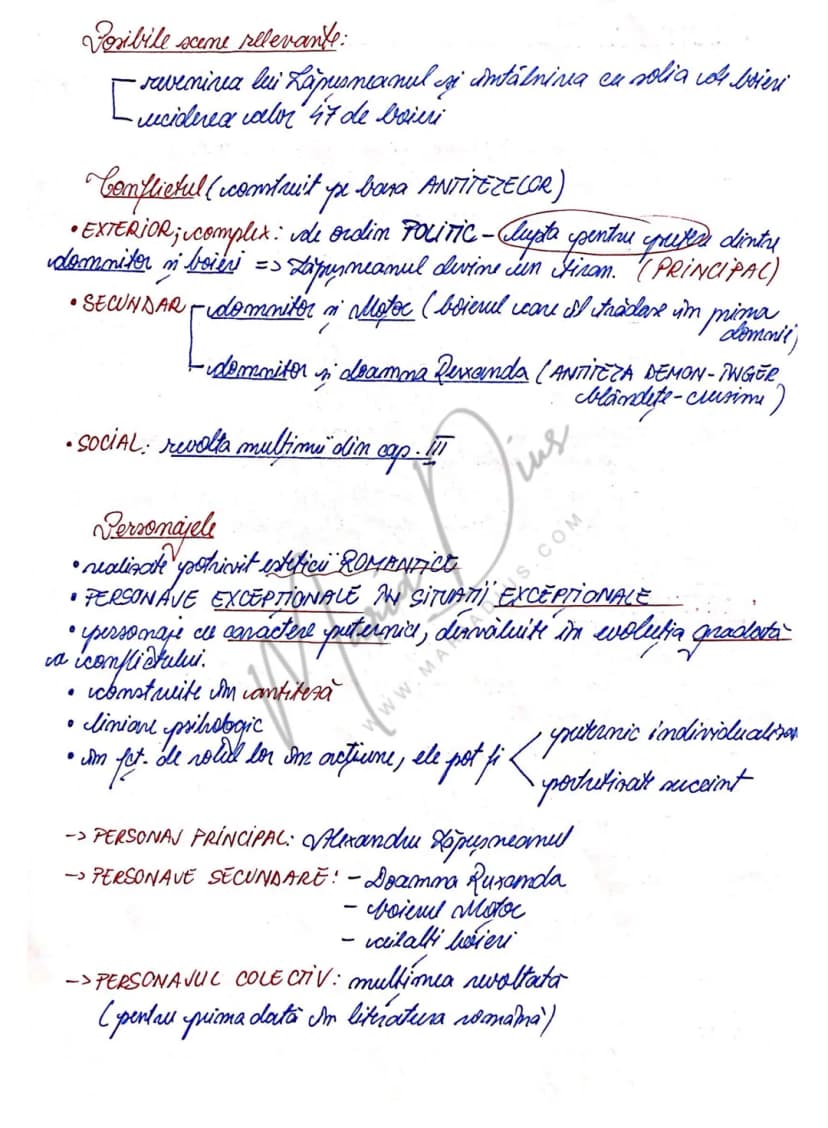 Posibile scene relevante:
- revenirea lui Lăpușneanul și întâlnirea cu solia de boieri
- uciderea celor 47 de boieri
Conflictul (construit pe baza ANTITEZELOR)
• EXTERIOR; complex: de ordin POLITIC - lupta pentru putere dintre
domnitor și boieri => Lăpușneanul devine un tiran. (PRINCIPAL)
• SECUNDAR - domnitor și Moțoc (boierul care îl trădase în prima
domnie)
- domnitor și doamna Ruxanda (ANTITEZA DEMON-ÎNGER,
blândețe-cruzime)
• SOCIAL: revolta mulțimii din cap. III
Personajele
• realizate potrivit esteticii ROMANTICE
• PERSONAJE EXCEPȚIONALE ÎN SITUAȚII EXCEPȚIONALE
• personaje cu caractere puternice, dezvăluite în evoluția gradată
a conflictului.
• construite în antiteză
• liniare psihologic
• în fct. de rolul lor în acțiune, ele pot fi < puternic individualizate
portretizate succint
-> PERSONAJ PRINCIPAL: Alexandru Lăpușneanul
-> PERSONAJE SECUNDARE: - Doamna Ruxanda
- boierul Moțoc
- ceilalți boieri
-> PERSONAJUL COLECTIV: mulțimea revoltată
(pentru prima dată în literatura română)
Maria Dius
WWW.MARIADIUS.COM